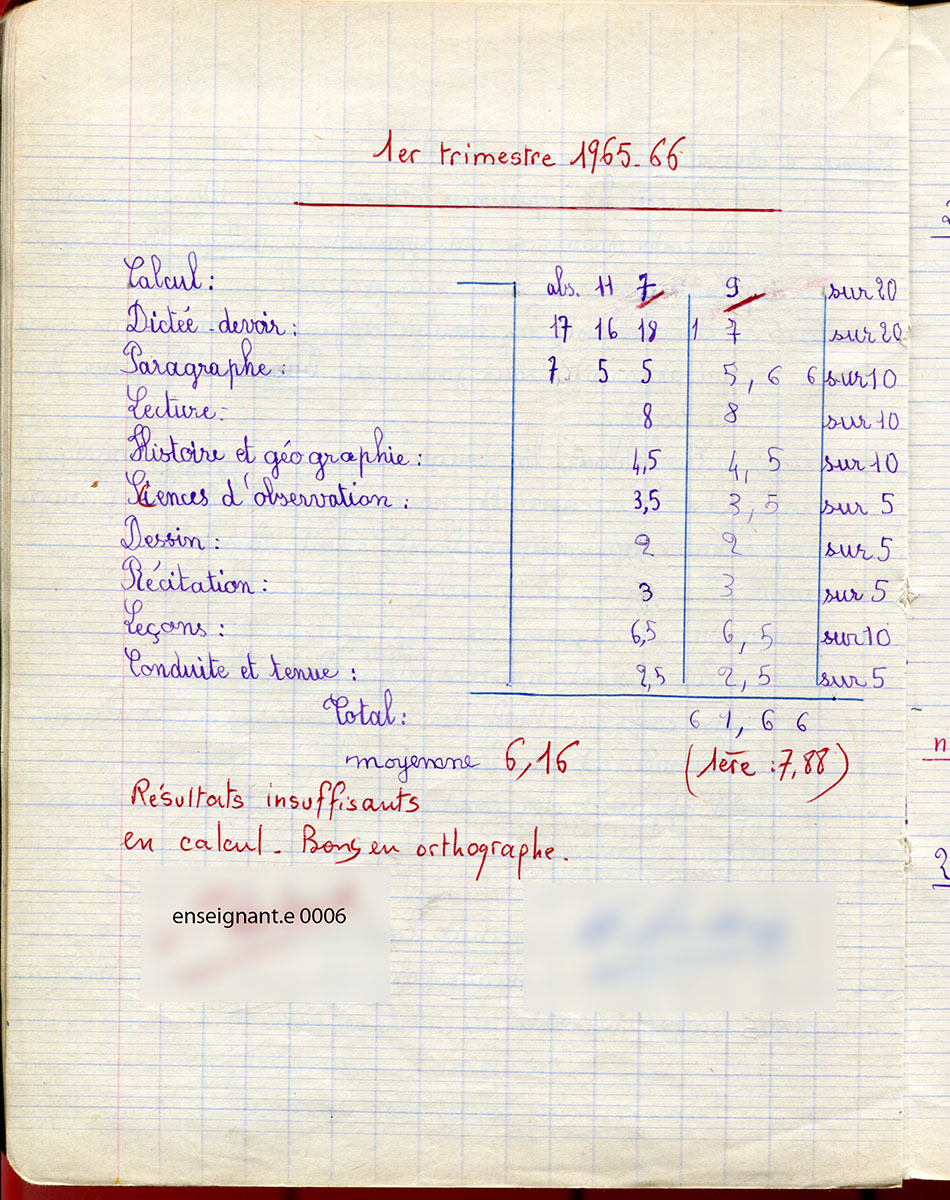 1er trimestre 1965-66
Calcul: abs. 11 7 9 sur 20
Dictée-devoir: 17 16 18 1 7 sur 20
Paragraphe: 7 5 5 5, 6 6 sur 10
Lecture: 8 8 sur 10
Histoire et géographie: 4,5 4, 5 sur 10
Sciences d'observation: 3,5 3,5 sur 5
Dessin: 2 2 sur 5
Récitation: 3 3 sur 5
Leçons: 6,5 6, 5 sur 10
Conduite et tenue: 2,5 2, 5 sur 5
Total: 6 1, 6 6
moyenne 6,16 (1ère : 7,88)
Résultats insuffisants
en calcul - Bons en orthographe.
enseignant.e 0006